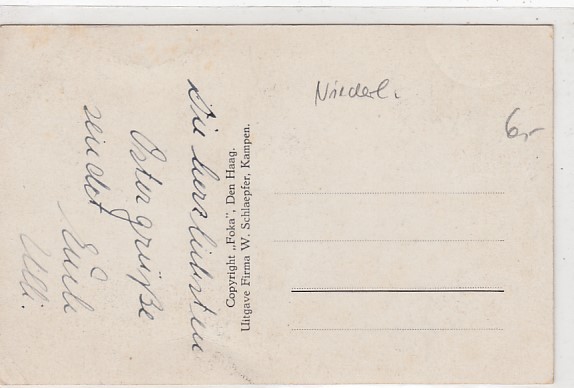 Die herzlichsten
Ostergrüße
sendet
Euch
Ulli.
Copyright „Foka", Den Haag.
Uitgave Firma W. Schlaepfer, Kampen.
Niederl.
6,-